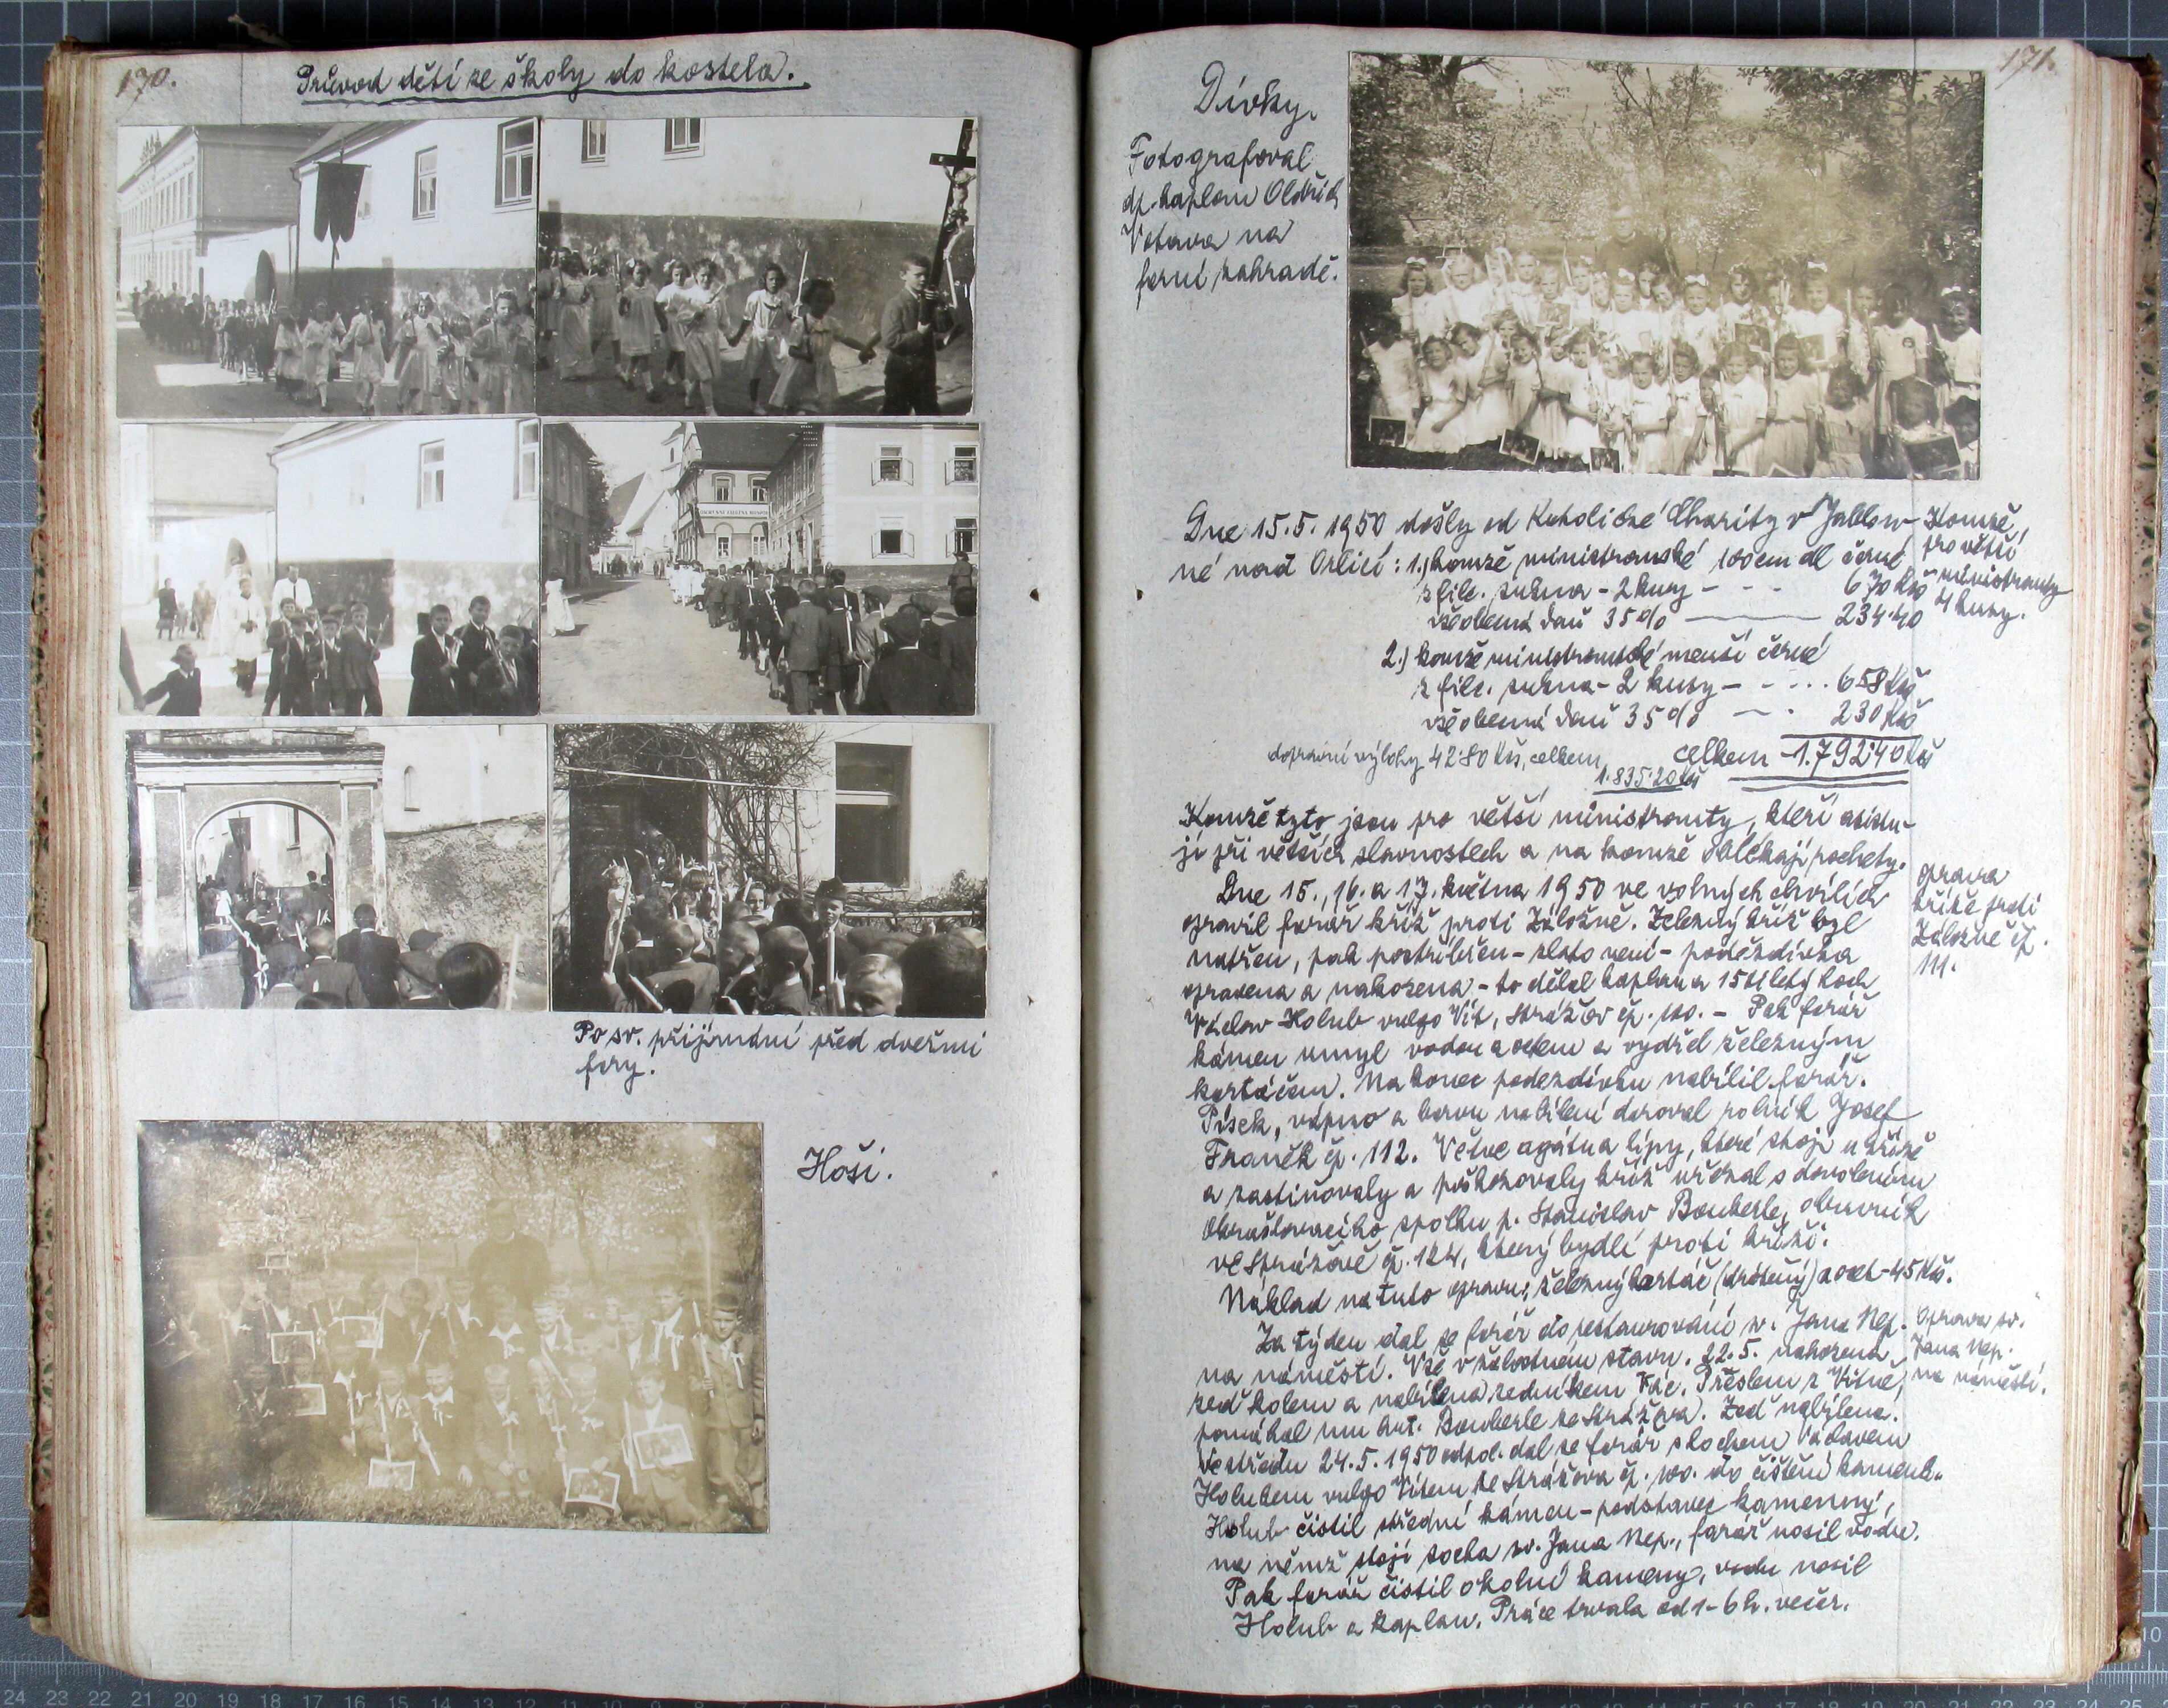 170.
Průvod dětí ze školy do kostela.
Po sv. přijímání před dveřmi
fary.
Hoši.
171.
Dívky.
Fotografoval
dp. kaplan Oldřich
Votava na
farní zahradě.
Dne 15.5.1950 došly od Katolické Charity v Jablon-
né nad Orlicí: 1.) komže ministrantské 100 cm dl černé
z filc. sukna - 2 kusy - - - 670 Kčs
všeobecná daň 35% 234·40
2.) komže ministrantské menší černé
z filc. sukna - 2 kusy - - ... 658 Kčs
všeobecná daň 35% - . 230 Kčs
celkem - 1.792·40 Kčs
dopravní výlohy 42·80 Kčs, celkem
1.835·20 Kčs
Komže,
pro větší
ministranty
4 kusy.
Komže tyto jsou pro větší ministranty, kteří asistu-
jí při větších slavnostech a na komže oblékají rochety.
Dne 15., 16. a 17. května 1950 ve volných chvílích
opravil farář kříž proti Záložně. Železný kříž byl
natřen, pak postříbřen - zlato není - podezdívka
opravena a nahozena - to dělal kaplan a 15tiletý hoch
Václav Holub vulgo Vít, Strážov čp. 100. - Pak farář
kámen umyl vodou a octem a vydřel železným
kartáčem. Nakonec podezdívku nabílil farář.
Písek, vápno a barvu na bílení daroval rolník Josef
Franěk čp. 112. Větve agátu a lípy, které stojí u kříže
a zastiňovaly a poškozovaly kříž uřezal s dovolením
okrašlovacího spolku p. Stanislav Bouberle, obuvník
ve Strážově čp. 124, který bydlí proti kříži.
Náklad na tuto opravu: železný kartáč (drátěný) a ocet - 45 Kčs.
oprava
kříže proti
Záložně čp.
111.
Za týden dal se farář do restaurování sv. Jana Nep.
na náměstí. Vše v žalostném stavu. 22.5. nahozena
zeď kolem a nabílena zedníkem Vác. Přeslem z Vítně,
pomáhal mu Ant. Bouberle ze Strážova. Zeď nabílena.
Ve středu 24.5.1950 odpol. dal se farář s hochem Václavem
Holubem vulgo Vítem ze Strážova čp. 100. do čištění kamenů.
Holub čistil střední kámen - podstavec kamenný,
na němž stojí socha sv. Jana Nep., farář nosil vodu.
Pak farář čistil okolní kameny, vodu nosil
Holub a kaplan. Práce trvala od 1 - 6 h. večer.
oprava sv.
Jana Nep.
na náměstí.